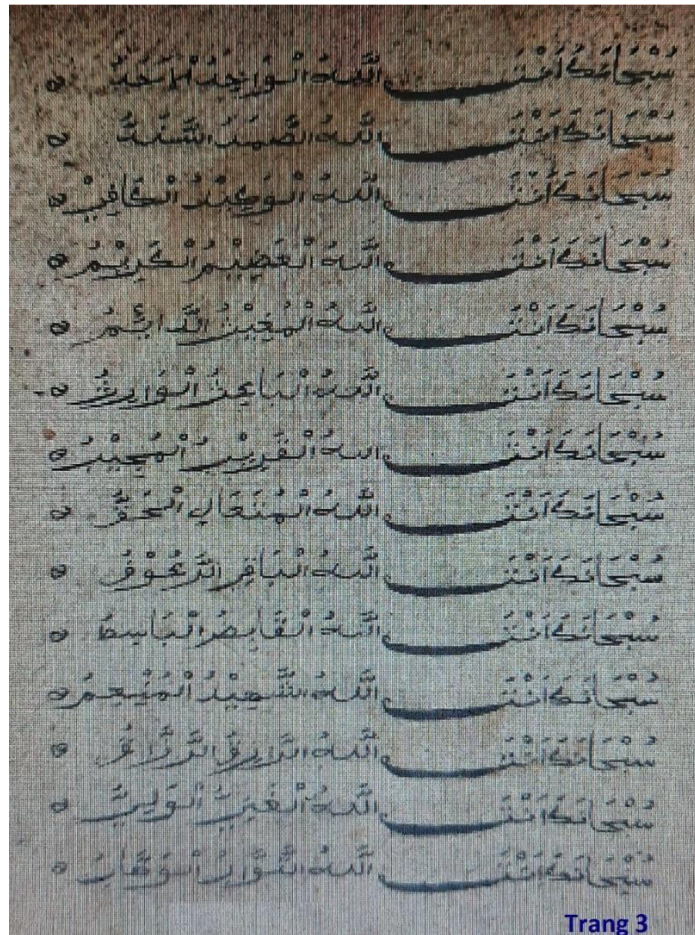 سُبْحَانَكَ اَنْتَ اللهُ الْوَاحِدُ الْاَحَدُ ه
سُبْحَانَكَ اَنْتَ اللهُ الصَّمَدُ ه
سُبْحَانَكَ اَنْتَ اللهُ الْكَافِيْ ه
سُبْحَانَكَ اَنْتَ اللهُ الْعَضِيْمُ الْكَرِيْمُ ه
سُبْحَانَكَ اَنْتَ اللهُ الْمُغِيْثُ الدَّائِمُ ه
سُبْحَانَكَ اَنْتَ اللهُ الْبَاعِثُ الْوَارِثُ ه
سُبْحَانَكَ اَنْتَ اللهُ الْقَرِيْبُ الْمُجِيْبُ ه
سُبْحَانَكَ اَنْتَ اللهُ الْمُتَعَالِ الْحَقُّ ه
سُبْحَانَكَ اَنْتَ اللهُ ه
سُبْحَانَكَ اَنْتَ اللهُ الْقَابِضُ الْبَاسِطُ ه
سُبْحَانَكَ اَنْتَ اللهُ الشَّهِيْدُ الْمُنْعِمُ ه
سُبْحَانَكَ اَنْتَ اللهُ الرَّازِقُ الرَّزَّاقُ ه
سُبْحَانَكَ اَنْتَ اللهُ الْغَنِيُّ الْوَلِيُّ ه
سُبْحَانَكَ اَنْتَ اللهُ التَّوَّابُ الْوَهَّابُ ه
Trang 3